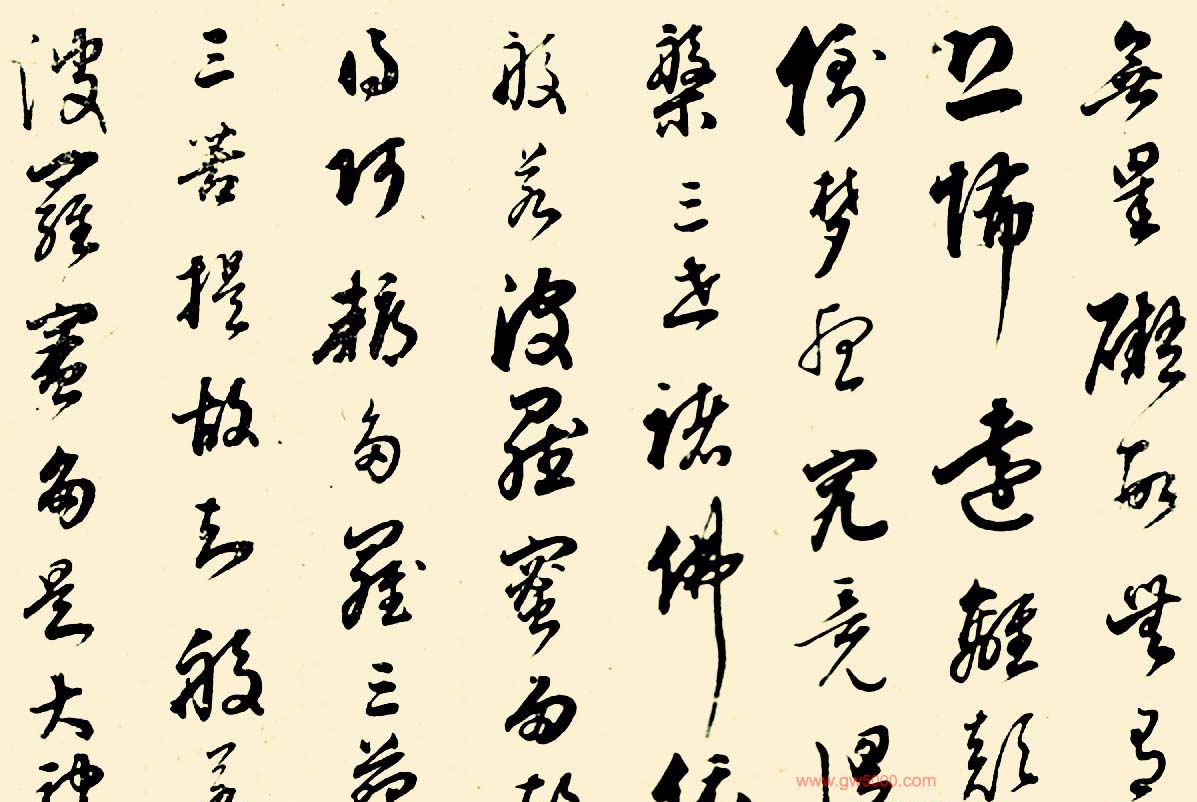 無罣礙故無有
恐怖遠離顛
倒夢想究竟涅
槃三世諸佛依
般若波羅蜜多故
得阿耨多羅三藐
三菩提故知般若
波羅蜜多是大神
www.gw5000.com